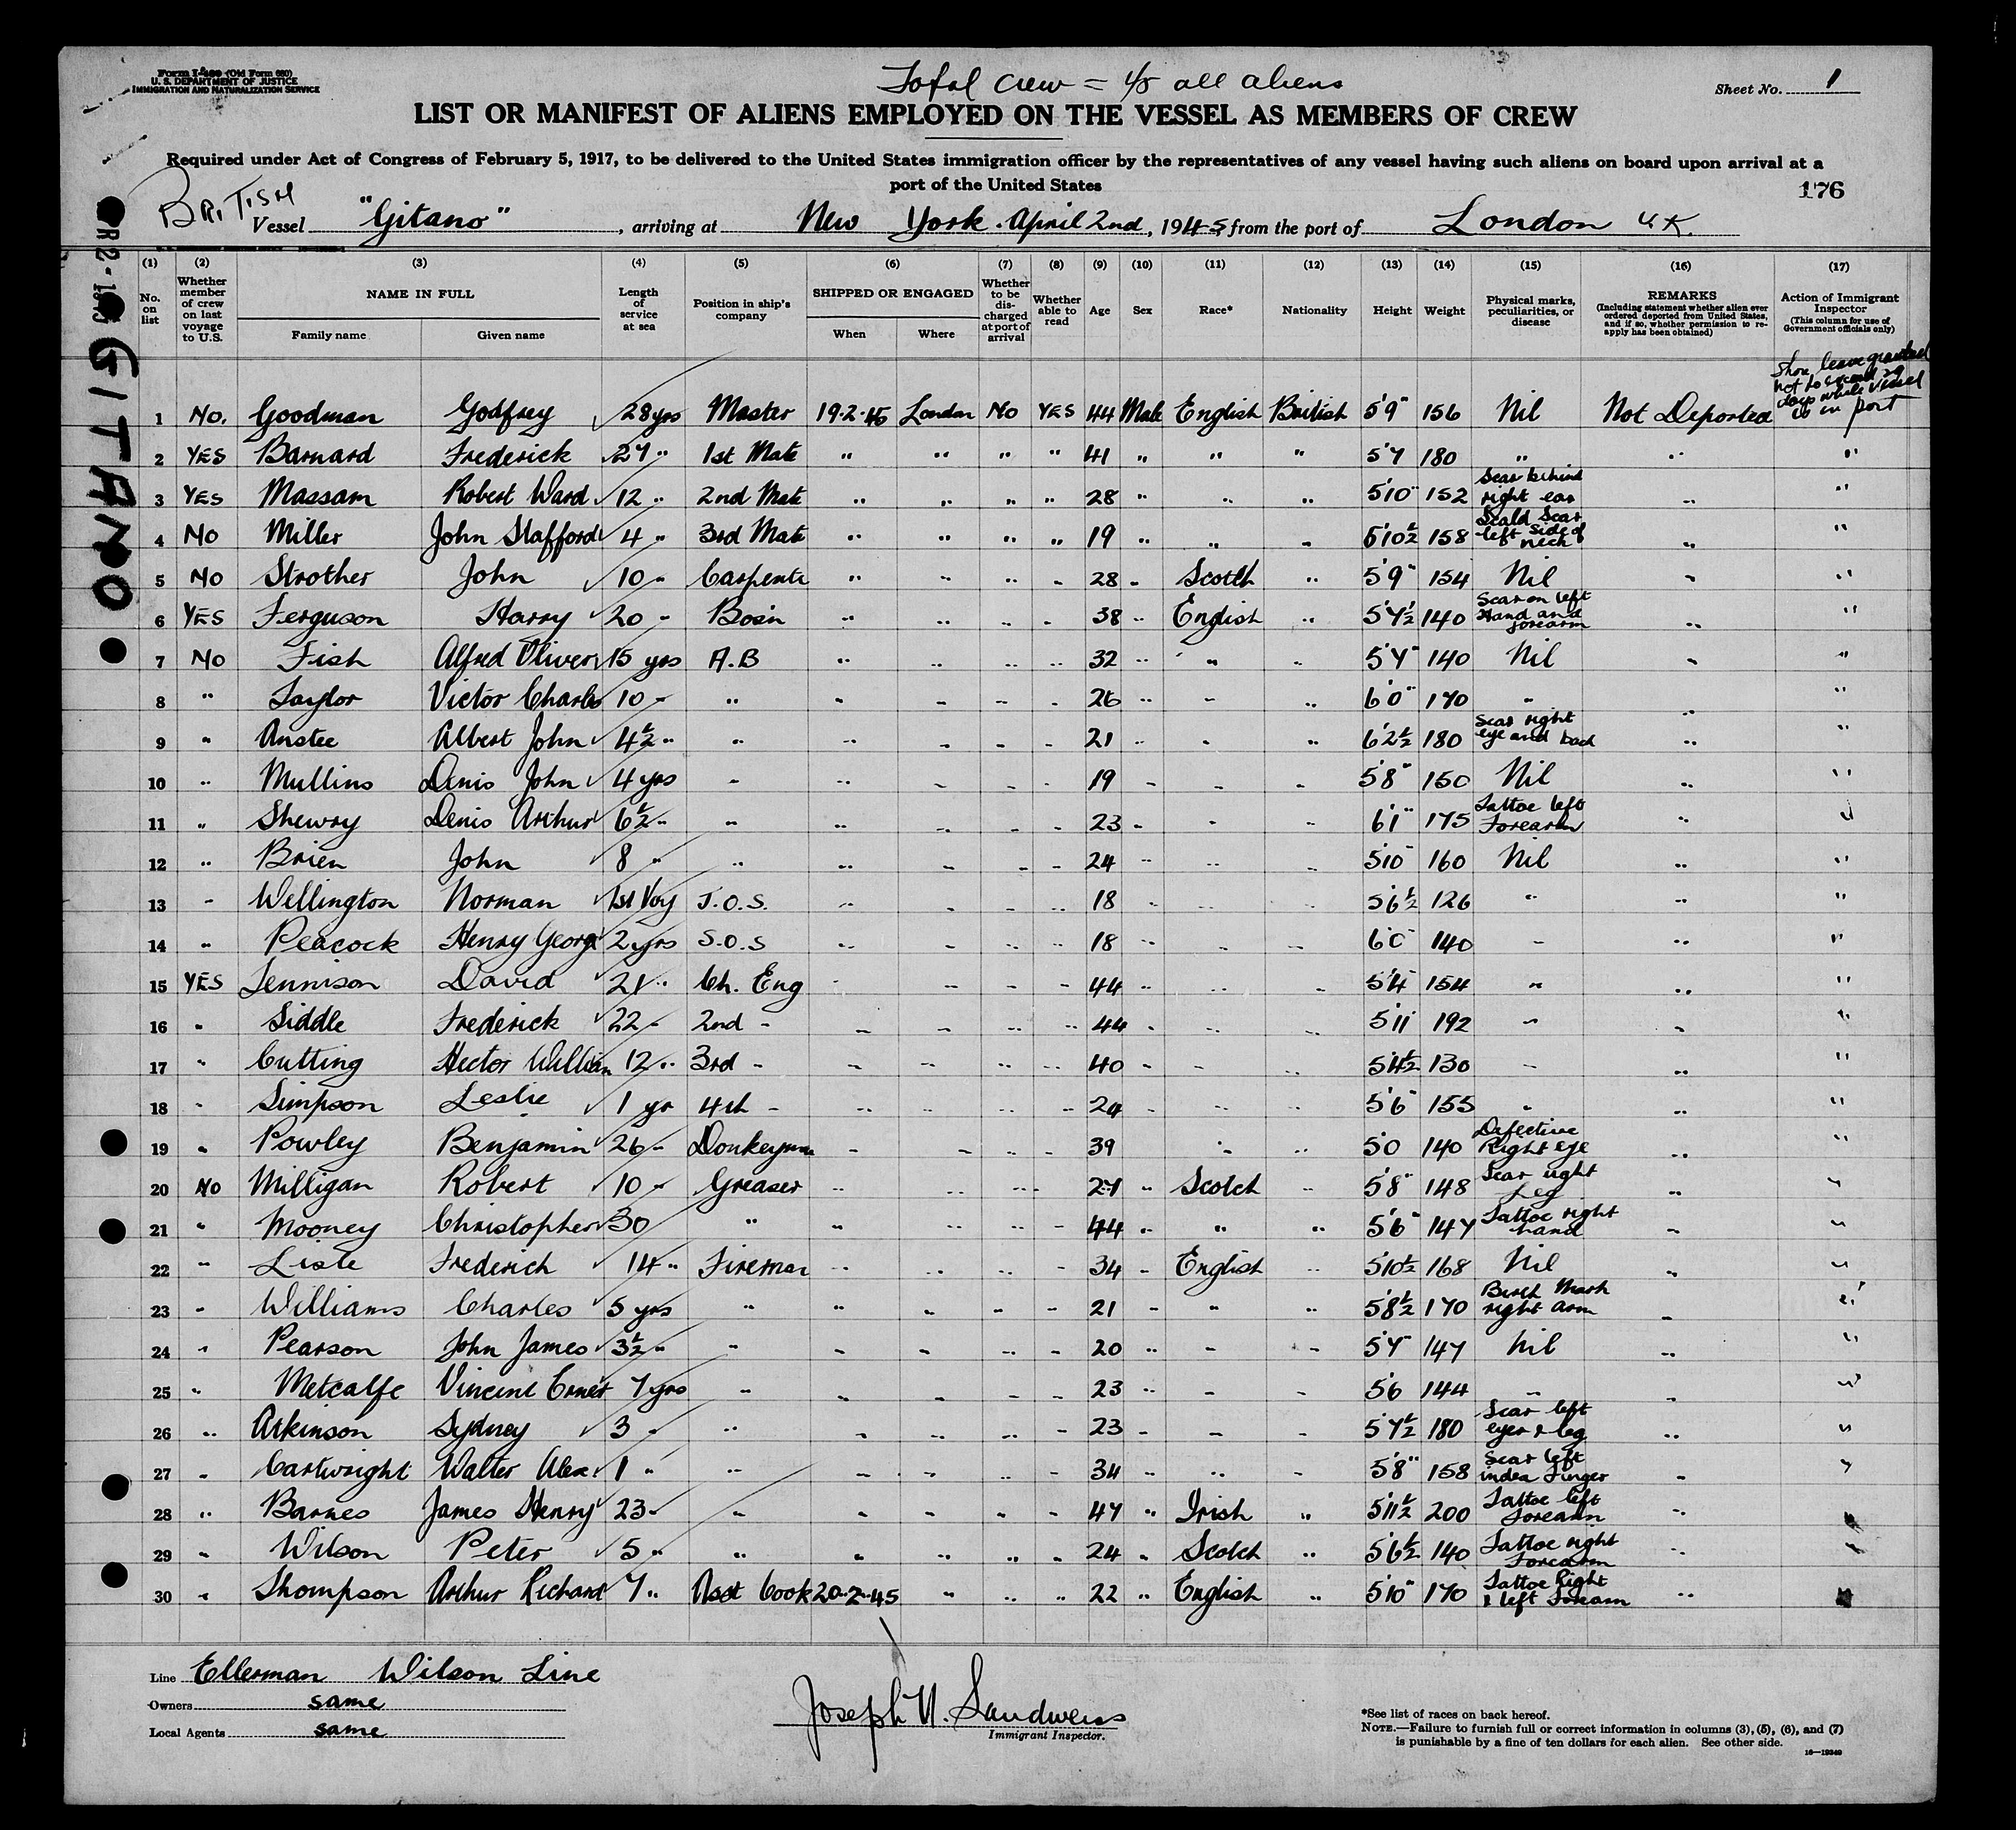 Form I-489 (Old Form 680)
U. S. DEPARTMENT OF JUSTICE
IMMIGRATION AND NATURALIZATION SERVICE
Total crew = 45 all aliens
Sheet No. 1
LIST OR MANIFEST OF ALIENS EMPLOYED ON THE VESSEL AS MEMBERS OF CREW
Required under Act of Congress of February 5, 1917, to be delivered to the United States immigration officer by the representatives of any vessel having such aliens on board upon arrival at a
port of the United States
176
BRITISH
Vessel "Gitano", arriving at New York. April 2nd, 1945 from the port of London U.K.
GITANO
(1) (2) (3) (4) (5) (6) (7) (8) (9) (10) (11) (12) (13) (14) (15) (16) (17)
No. on list
Whether member of crew on last voyage to U.S.
NAME IN FULL
Family name Given name
Length of service at sea
Position in ship's company
SHIPPED OR ENGAGED
When Where
Whether to be discharged at port of arrival
Whether able to read
Age
Sex
Race*
Nationality
Height
Weight
Physical marks, peculiarities, or disease
REMARKS
(Including statement whether alien ever ordered deported from United States, and if so, whether permission to reapply has been obtained)
Action of Immigrant Inspector
(This column for use of Government officials only)
Shore leave granted not to exceed 29 days while vessel is in port
1 No. Goodman Godfrey 28 yrs Master 19-2-45 London No YES 44 Male English British 5'9" 156 Nil Not Deported
2 YES Barnard Frederick 27 " 1st Mate " " " " 41 " " " 5'7 180 " " "
3 YES Massam Robert Ward 12 " 2nd Mate " " " " 28 " " " 5'10" 152 Scar behind right ear " "
4 No Miller John Stafford 4 " 3rd Mate " " " " 19 " " " 5'10½ 158 Scald Scar left side of neck " "
5 No Strother John 10 " Carpenter " " " " 28 " Scotch " 5'9" 154 Nil " "
6 YES Ferguson Harry 20 " Bosin " " " " 38 " English " 5'7½ 140 Scar on left Hand and forearm " "
7 No Fish Alfred Oliver 15 yrs A.B " " " " 32 " " " 5'7" 140 Nil " "
8 " Taylor Victor Charles 10 " " " " " " 26 " " " 6'0" 170 " " "
9 " Anstee Albert John 4½ " " " " " " 21 " " " 6'2½ 180 Scar right eye and back " "
10 " Mullins Denis John 4 yrs " " " " " 19 " " " 5'8" 150 Nil " "
11 " Shewry Denis Arthur 6½ " " " " " " 23 " " " 6'1" 175 Tattoe left Forearm " "
12 " Brien John 8 " " " " " " 24 " " " 5'10" 160 Nil " "
13 " Wellington Norman 1st Voy J.O.S. " " " " 18 " " " 5'6½ 126 " " "
14 " Peacock Henry George 2 yrs S.O.S " " " " 18 " " " 6'0" 140 " " "
15 YES Jennison David 21 " Ch. Eng " " " " 44 " " " 5'4 154 " " "
16 " Siddle Frederick 22 " 2nd " " " " " 44 " " " 5'11 192 " " "
17 " Cutting Hector William 12 " 3rd " " " " " 40 " " " 5'4½ 130 " " "
18 " Simpson Leslie 1 yr 4th " " " " " 24 " " " 5'6" 155 " " "
19 " Powley Benjamin 26 " Donkeyman " " " " 39 " " " 5'0 140 Defective Right eye " "
20 No Milligan Robert 10 " Greaser " " " " 27 " Scotch " 5'8" 148 Scar right Leg " "
21 " Mooney Christopher 30 " " " " " 44 " " " 5'6" 147 Tattoe right hand " "
22 " Lisle Frederick 14 " Fireman " " " " 34 " English " 5'10½ 168 Nil " "
23 " Williams Charles 5 yrs " " " " " 21 " " " 5'8½ 170 Birth Mark right arm " "
24 " Pearson John James 3½ " " " " " " 20 " " " 5'7" 147 Nil " "
25 " Metcalfe Vincent Ernest 7 yrs " " " " " 23 " " " 5'6 144 " " "
26 " Atkinson Sydney 3 " " " " " " 23 " " " 5'7½ 180 Scar left eyes & leg " "
27 " Cartwright Walter Alex. 1 " " " " " " 34 " " " 5'8" 158 Scar left index Finger " "
28 " Barnes James Henry 23 " " " " " " 47 " Irish " 5'11½ 200 Tattoe left Forearm " "
29 " Wilson Peter 5 " " " " " " 24 " Scotch " 5'6½ 140 Tattoe right Forearm " "
30 " Thompson Arthur Richard 7 " Asst Cook 20-2-45 " " " 22 " English " 5'10" 170 Tattoe Right & left Forearm "
Line Ellerman Wilson Line
Owners same
Local Agents same
Joseph N. Sandweiss
Immigrant Inspector.
*See list of races on back hereof.
NOTE.—Failure to furnish full or correct information in columns (3), (5), (6), and (7)
is punishable by a fine of ten dollars for each alien. See other side.
16—19349